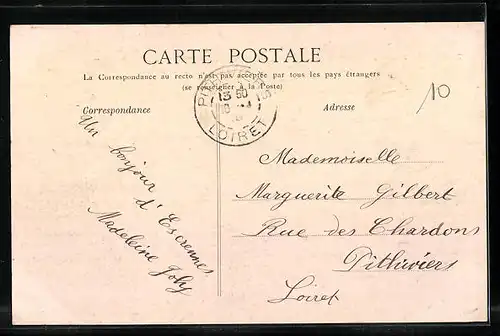 CARTE POSTALE
La Correspondance au recto n'est pas acceptée par tous les pays étrangers
(se renseigner à la Poste)
Correspondance
Adresse
10
13 50
LOIRET
Un bonjour
d'Escrennes
Madeleine Joly
Mademoiselle
Marguerite Gilbert
Rue des Chardons
Pithiviers
Loiret